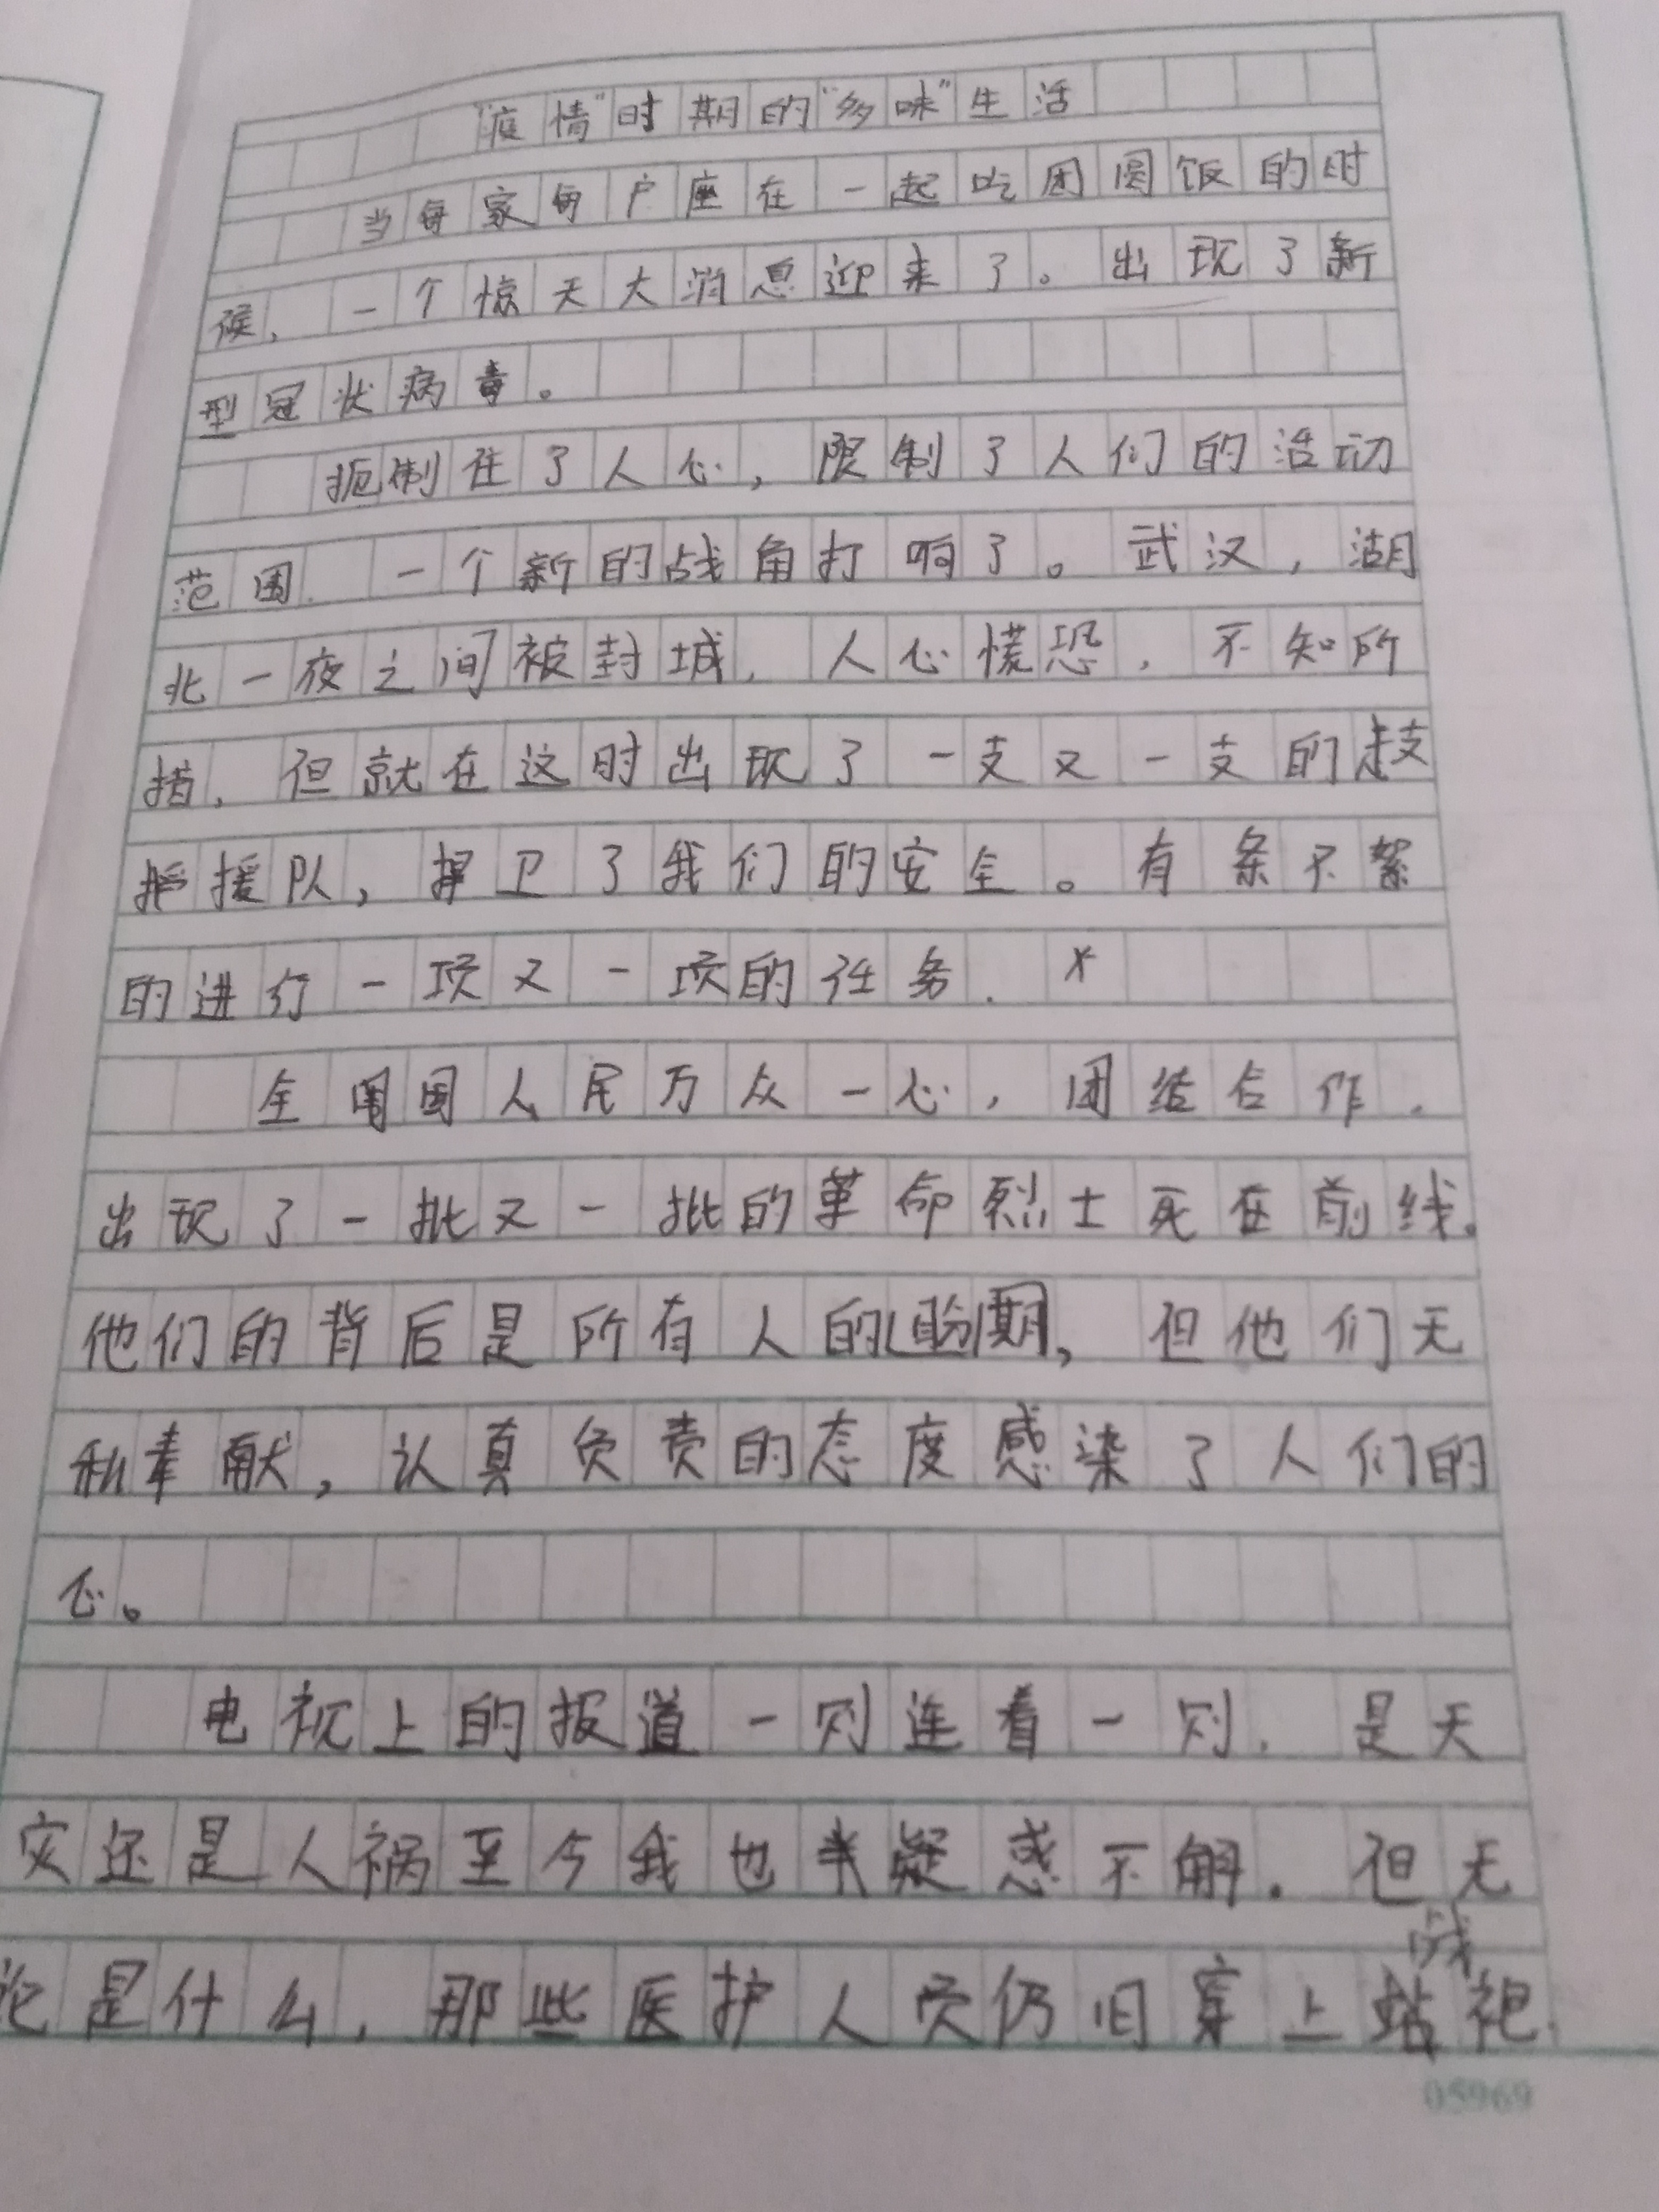 “疫情”时期的“多味”生活
当每家每户座在一起吃团圆饭的时
候，一个惊天大消息迎来了。出现了新
型冠状病毒。
扼制住了人心，限制了人们的活动
范围．一个新的战角打响了。武汉，湖
北一夜之间被封城．人心慌恐，不知所
措，但就在这时出现了一支又一支的
援队，捍卫了我们的安全。有条不絮
的进行一项又一项的任务．
全国国人民万众一心，团结合作．
出现了一批又一批的革命烈士死在前线。
他们的背后是所有人的盼期，但他们无
私奉献，认真负责的态度感染了人们的
心。
电视上的报道一则连着一则．是天
灾还是人祸至今我也半疑惑不解．但无
论是什么，那些医护人员仍旧穿上战袍．
05969